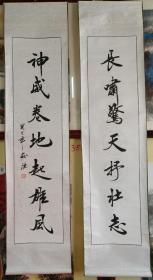 長嘯驚天抒壯志
神威卷地起雄风